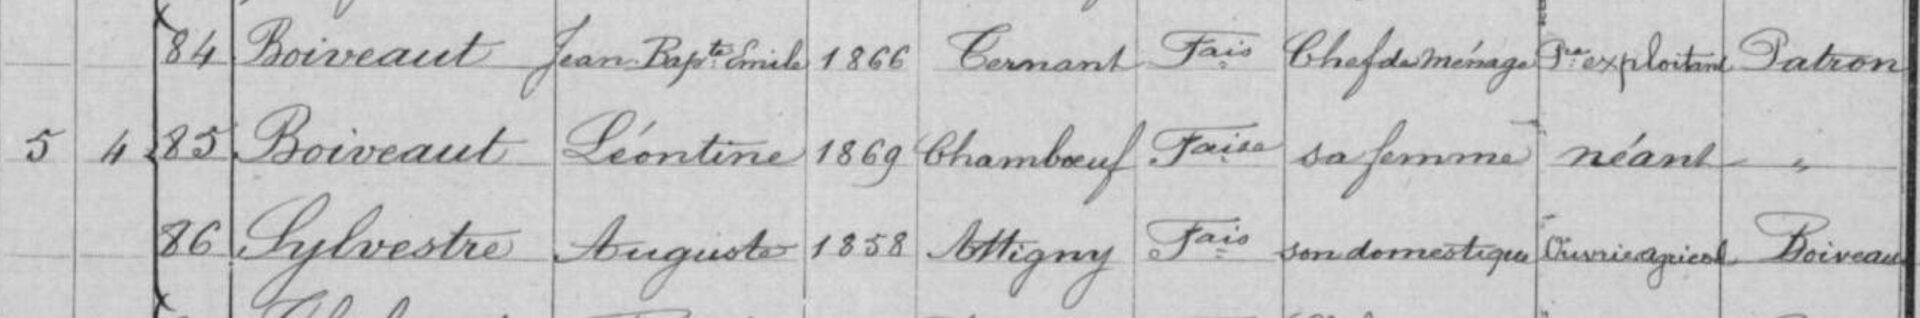 84 Boiveaut Jean-Bapte Emile 1866 Ternant Fais Chef de ménage Pre exploitant Patron
5 4 85 Boiveaut Léontine 1869 Chambœuf Faise sa femme néant "
86 Sylvestre Auguste 1858 Attigny Fais son domestique Ouvrier agricol Boiveaut